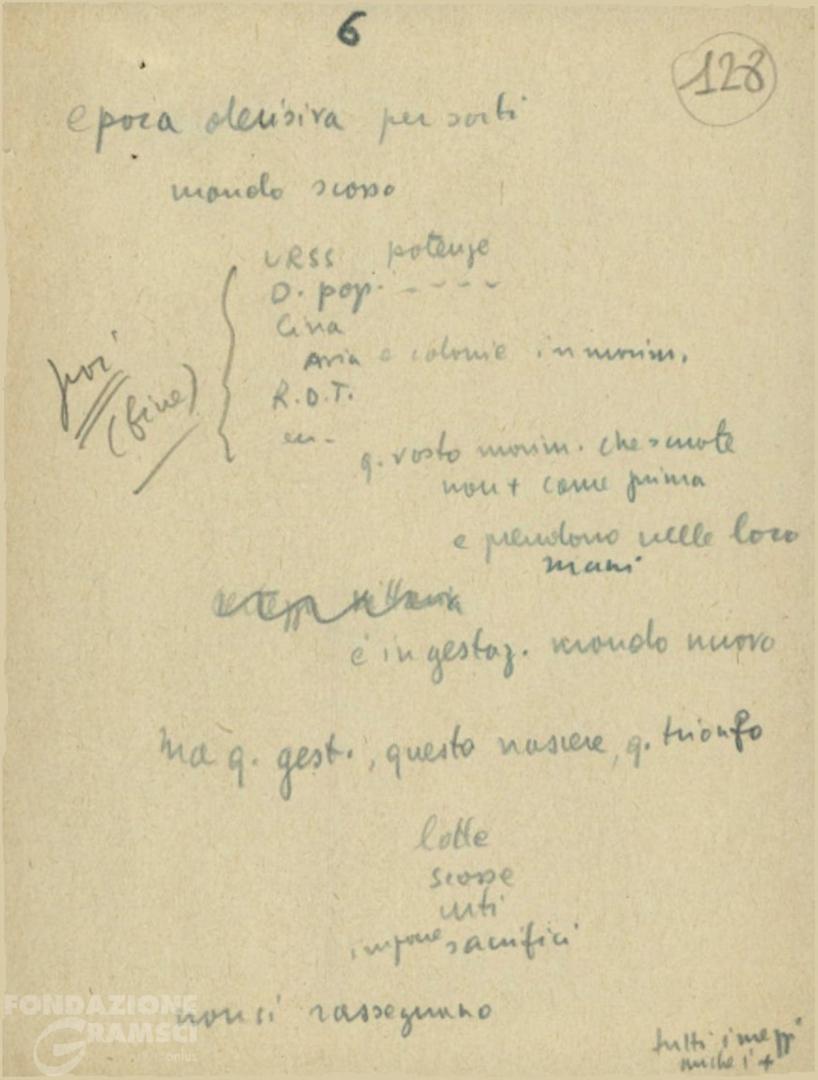 6
128
epoca decisiva per sorti
mondo scosso
URSS potenze
D. pop. - - - -
Cina
Asia e colonie in movim.
R.D.T.
ecc.
poi
(fine)
q. vasto movim. che scuote
non + come prima
e prendono nelle loro
mani
è in gestaz. mondo nuovo
Ma q. gest., questo nascere, q. trionfo
lotte
scosse
urti
impone sacrifici
non si rassegnano
tutti i mezzi
anche i +
FONDAZIONE
GRAMSCI